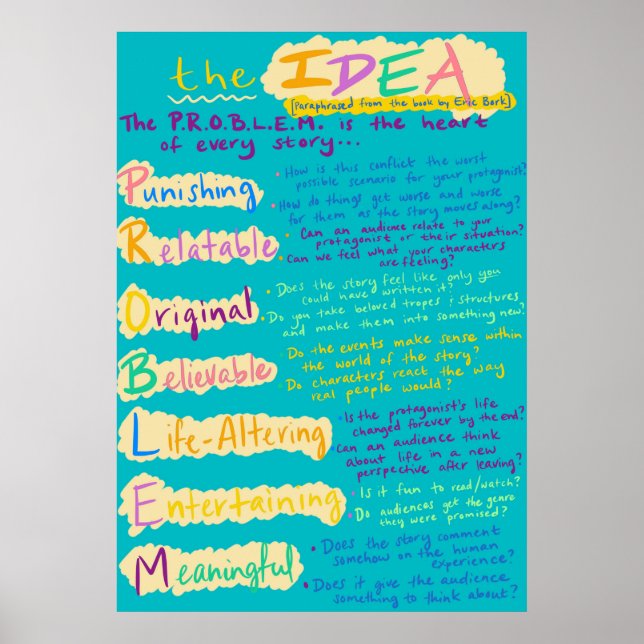 the IDEA
[Paraphrased from the book by Eric Bork]
The P.R.O.B.L.E.M. is the heart
of every story...
Punishing
• How is this conflict the worst
possible scenario for your protagonist?
• How do things get worse and worse
for them as the story moves along?
Relatable
• Can an audience relate to your
protagonist or their situation?
• Can we feel what your characters
are feeling?
Original
• Does the story feel like only you
could have written it?
• Do you take beloved tropes & structures
and make them into something new?
Believable
• Do the events make sense within
the world of the story?
• Do characters react the way
real people would?
Life-Altering
• Is the protagonist's life
changed forever by the end?
• Can an audience think
about life in a new
perspective after leaving?
Entertaining
• Is it fun to read/watch?
• Do audiences get the genre
they were promised?
Meaningful
• Does the story comment
somehow on the human
experience?
• Does it give the audience
something to think about?